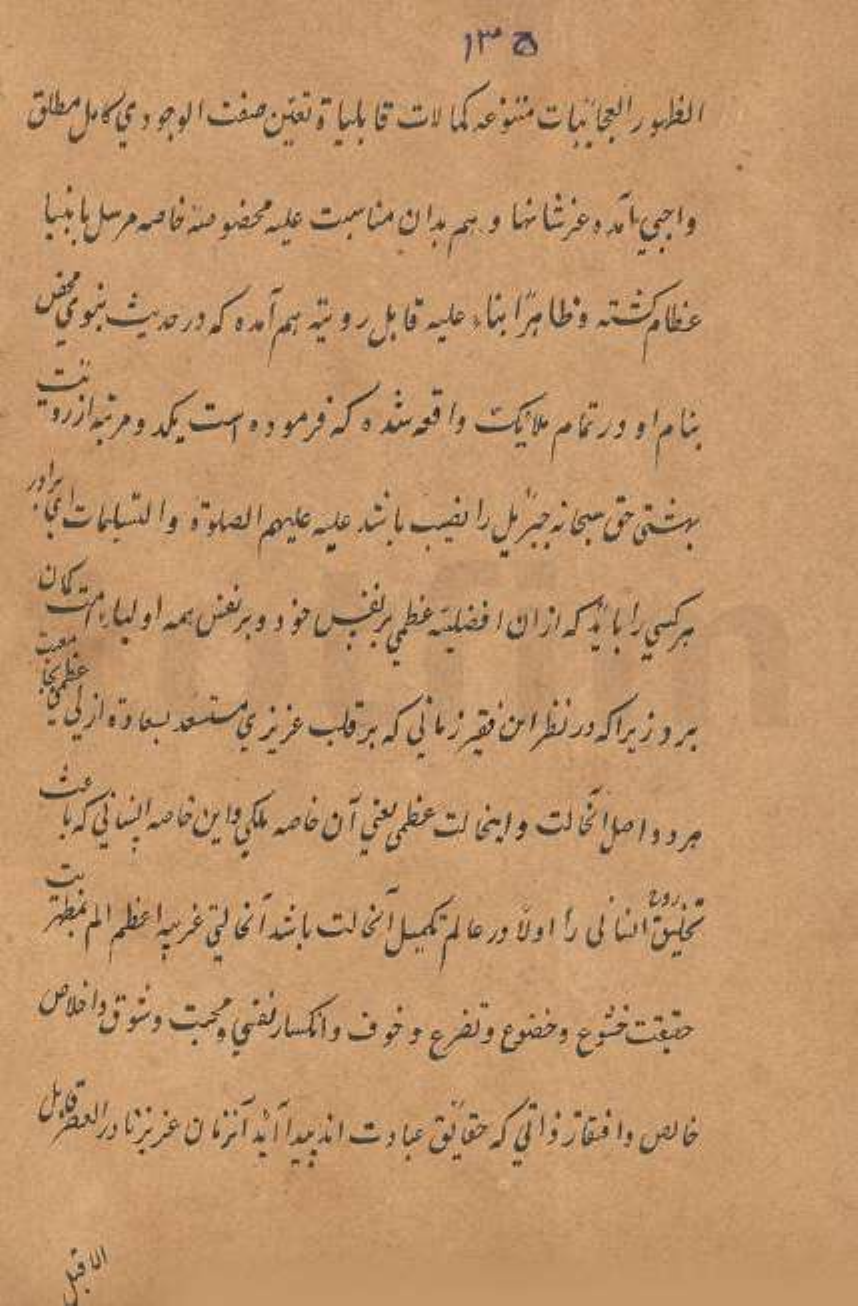 ۱۳۵
الظهور العجائبات متنوعه کمالات قابلیاة تعین صفت الوجودی کامل مطلق
واجبی آمده عزشانها و هم بدان مناسبت علیه مخصوصة خاصه مرسل بانبیا
عظام کشته و ظاهرًا بناء علیه قابل رویته هم آمده که در حدیث نبوی محض
بنام او در تمام ملائک واقعه شده که فرموده است یکد و مرتبه از رویت
بهشتی حق سبحانه جبرئیل را نصیب باشد علیه علیهم الصلوة والتسلیمات ای برادر
هر کسی را باید که ازان افضلیته عظمی بر نفس خود و بر نفس همه اولیاء امت کمان
برو زیرا که در نظر این فقیر زمانی که بر قلب عزیزی مستعد بسعادة ازلی عظمی
مرد و اصل آنحالت و اینحالت عظمی یعنی آن خاصه ملکی و این خاصه انسانی که باعث
تخلیق روح انسانی را اولا در عالم تکمیل آنحالت باشد آنحالتی غریبه اعظم الم بمظهریت
حقیقت خشوع و خضوع و تضرع و خوف و انکسار نفسی و محبت و شوق و اخلاص
خالص و افتقار ذاتی که حقائق عبادت اند پیدا آید آنزمان عزیز نادر العصر قابل